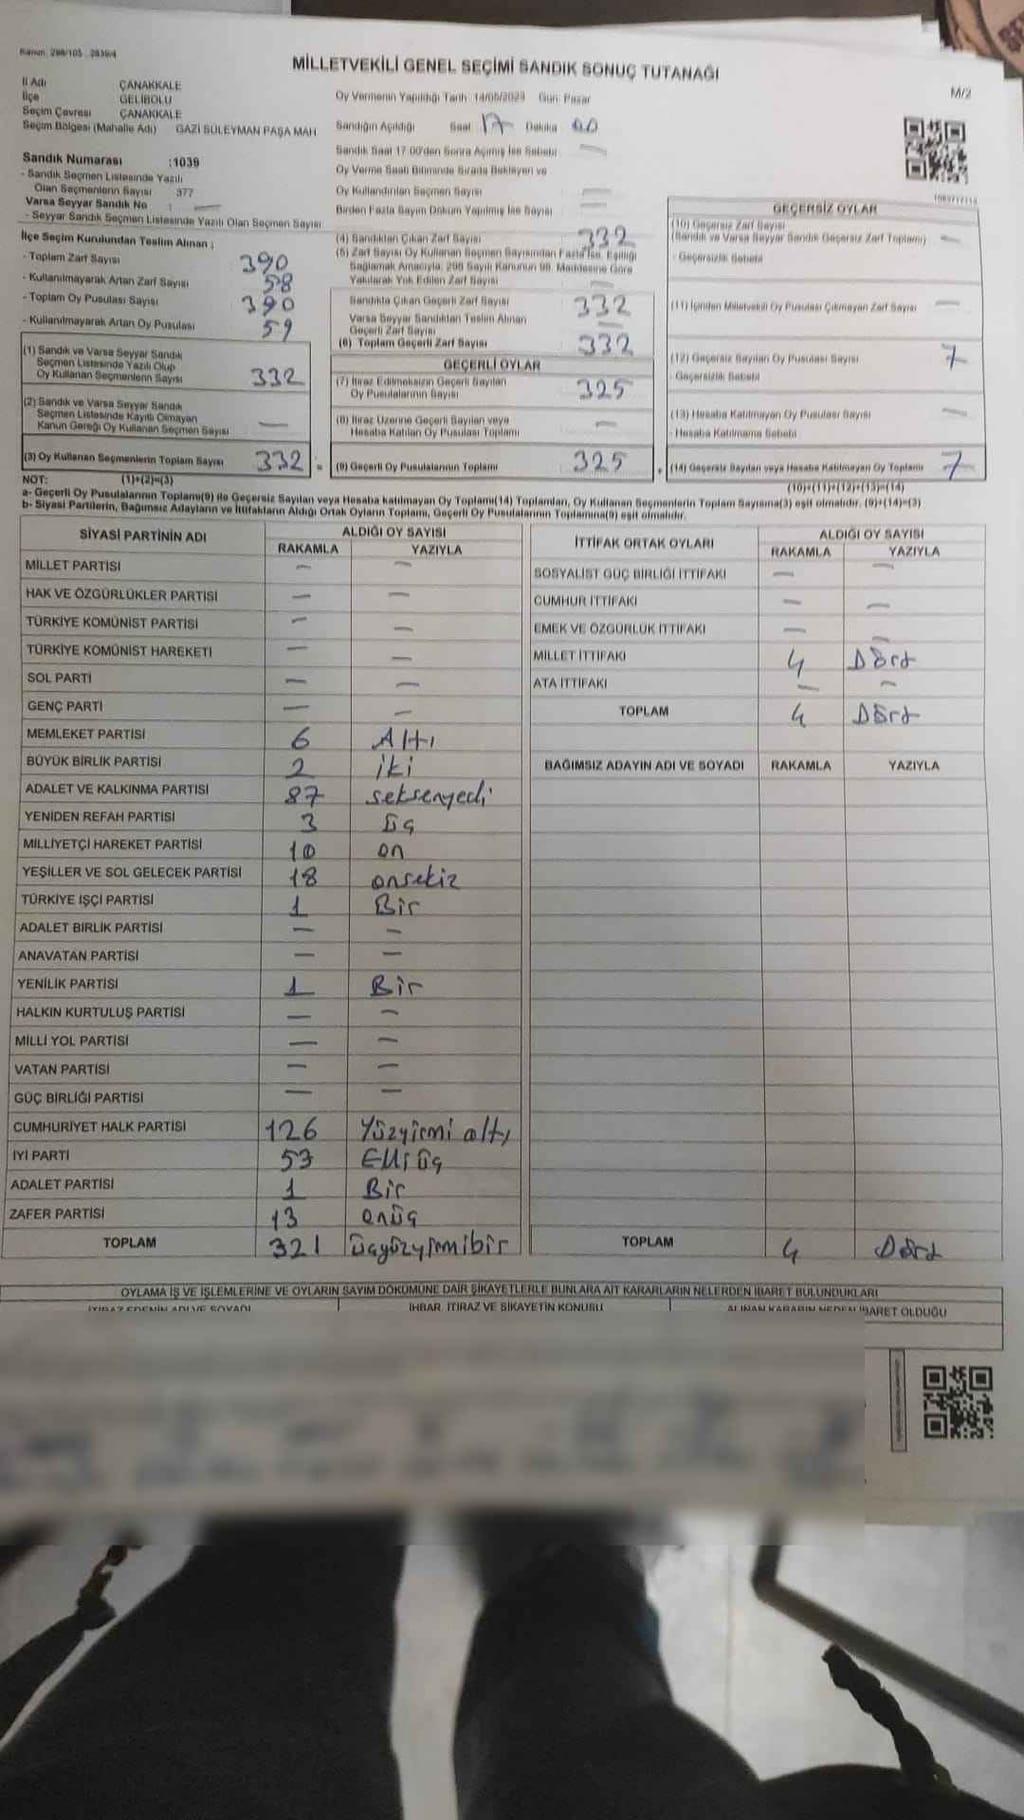 Kanun: 298/105 2839/4
MİLLETVEKİLİ GENEL SEÇİMİ SANDIK SONUÇ TUTANAĞI
M/2
İl Adı ÇANAKKALE
İlçe GELİBOLU
Seçim Çevresi ÇANAKKALE
Seçim Bölgesi (Mahalle Adı) GAZİ SÜLEYMAN PAŞA MAH
Sandık Numarası :1039
- Sandık Seçmen Listesinde Yazılı
Olan Seçmenlerin Sayısı 377
Varsa Seyyar Sandık No : —
- Seyyar Sandık Seçmen Listesinde Yazılı Olan Seçmen Sayısı
Oy Vermenin Yapıldığı Tarih 14/05/2023 Gün: Pazar
Sandığın Açıldığı Saat 17 Dakika 00
Sandık Saat 17.00'den Sonra Açılmış İse Sebebi —
Oy Verme Saati Bitiminde Sırada Bekleyen ve
Oy Kullandırılan Seçmen Sayısı —
Birden Fazla Sayım Döküm Yapılmış İse Sayısı —
İlçe Seçim Kurulundan Teslim Alınan ;
- Toplam Zarf Sayısı 390
- Kullanılmayarak Artan Zarf Sayısı 58
- Toplam Oy Pusulası Sayısı 390
- Kullanılmayarak Artan Oy Pusulası 59
(1) Sandık ve Varsa Seyyar Sandık
Seçmen Listesinde Yazılı Olup
Oy Kullanan Seçmenlerin Sayısı 332
(2) Sandık ve Varsa Seyyar Sandık
Seçmen Listesinde Kayıtlı Olmayan
Kanun Gereği Oy Kullanan Seçmen Sayısı —
(3) Oy Kullanan Seçmenlerin Toplam Sayısı 332 =
(4) Sandıktan Çıkan Zarf Sayısı 332
(5) Zarf Sayısı Oy Kullanan Seçmen Sayısından Fazla İse, Eşitliği
Sağlamak Amacıyla, 298 Sayılı Kanunun 98. Maddesine Göre
Yakılarak Yok Edilen Zarf Sayısı —
Sandıkta Çıkan Geçerli Zarf Sayısı 332
Varsa Seyyar Sandıktan Teslim Alınan
Geçerli Zarf Sayısı —
(6) Toplam Geçerli Zarf Sayısı 332
GEÇERLİ OYLAR
(7) İtiraz Edilmeksizin Geçerli Sayılan
Oy Pusulalarının Sayısı 325
(8) İtiraz Üzerine Geçerli Sayılan veya
Hesaba Katılan Oy Pusulası Toplamı —
(9) Geçerli Oy Pusulalarının Toplamı 325 +
GEÇERSİZ OYLAR
(10) Geçersiz Zarf Sayısı
(Sandık ve Varsa Seyyar Sandık Geçersiz Zarf Toplamı) —
- Geçersizlik Sebebi
(11) İçinden Milletvekili Oy Pusulası Çıkmayan Zarf Sayısı —
(12) Geçersiz Sayılan Oy Pusulası Sayısı 7
- Geçersizlik Sebebi
(13) Hesaba Katılmayan Oy Pusulası Sayısı —
- Hesaba Katılmama Sebebi
(14) Geçersiz Sayılan veya Hesaba Katılmayan Oy Toplamı 7
NOT: (1)+(2)=(3)
(10)+(11)+(12)+(13)=(14)
a- Geçerli Oy Pusulalarının Toplamı(9) ile Geçersiz Sayılan veya Hesaba katılmayan Oy Toplamı(14) Toplamları, Oy Kullanan Seçmenlerin Toplam Sayısına(3) eşit olmalıdır. (9)+(14)=(3)
b- Siyasi Partilerin, Bağımsız Adayların ve İttifakların Aldığı Ortak Oyların Toplamı, Geçerli Oy Pusulalarının Toplamına(9) eşit olmalıdır.
SİYASİ PARTİNİN ADI ALDIĞI OY SAYISI
RAKAMLA YAZIYLA
MİLLET PARTİSİ — —
HAK VE ÖZGÜRLÜKLER PARTİSİ — —
TÜRKİYE KOMÜNİST PARTİSİ — —
TÜRKİYE KOMÜNİST HAREKETİ — —
SOL PARTİ — —
GENÇ PARTİ — —
MEMLEKET PARTİSİ 6 Altı
BÜYÜK BİRLİK PARTİSİ 2 iki
ADALET VE KALKINMA PARTİSİ 87 seksenyedi
YENİDEN REFAH PARTİSİ 3 üç
MİLLİYETÇİ HAREKET PARTİSİ 10 on
YEŞİLLER VE SOL GELECEK PARTİSİ 18 onsekiz
TÜRKİYE İŞÇİ PARTİSİ 1 Bir
ADALET BİRLİK PARTİSİ — —
ANAVATAN PARTİSİ — —
YENİLİK PARTİSİ 1 Bir
HALKIN KURTULUŞ PARTİSİ — —
MİLLİ YOL PARTİSİ — —
VATAN PARTİSİ — —
GÜÇ BİRLİĞİ PARTİSİ — —
CUMHURİYET HALK PARTİSİ 126 Yüzyirmi altı
İYİ PARTİ 53 Elli üç
ADALET PARTİSİ 1 Bir
ZAFER PARTİSİ 13 onüç
TOPLAM 321 üçyüzyirmibir
İTTİFAK ORTAK OYLARI ALDIĞI OY SAYISI
RAKAMLA YAZIYLA
SOSYALİST GÜÇ BİRLİĞİ İTTİFAKI — —
CUMHUR İTTİFAKI — —
EMEK VE ÖZGÜRLÜK İTTİFAKI — —
MİLLET İTTİFAKI 4 Dört
ATA İTTİFAKI — —
TOPLAM 4 Dört
BAĞIMSIZ ADAYIN ADI VE SOYADI RAKAMLA YAZIYLA
TOPLAM 4 Dört
OYLAMA İŞ VE İŞLEMLERİNE VE OYLARIN SAYIM DÖKÜMÜNE DAİR ŞİKAYETLERLE BUNLARA AİT KARARLARIN NELERDEN İBARET BULUNDUKLARI
İTİRAZ EDENİN ADI VE SOYADI İHBAR, İTİRAZ VE ŞİKAYETİN KONUSU ALINAN KARARIN NEDEN İBARET OLDUĞU